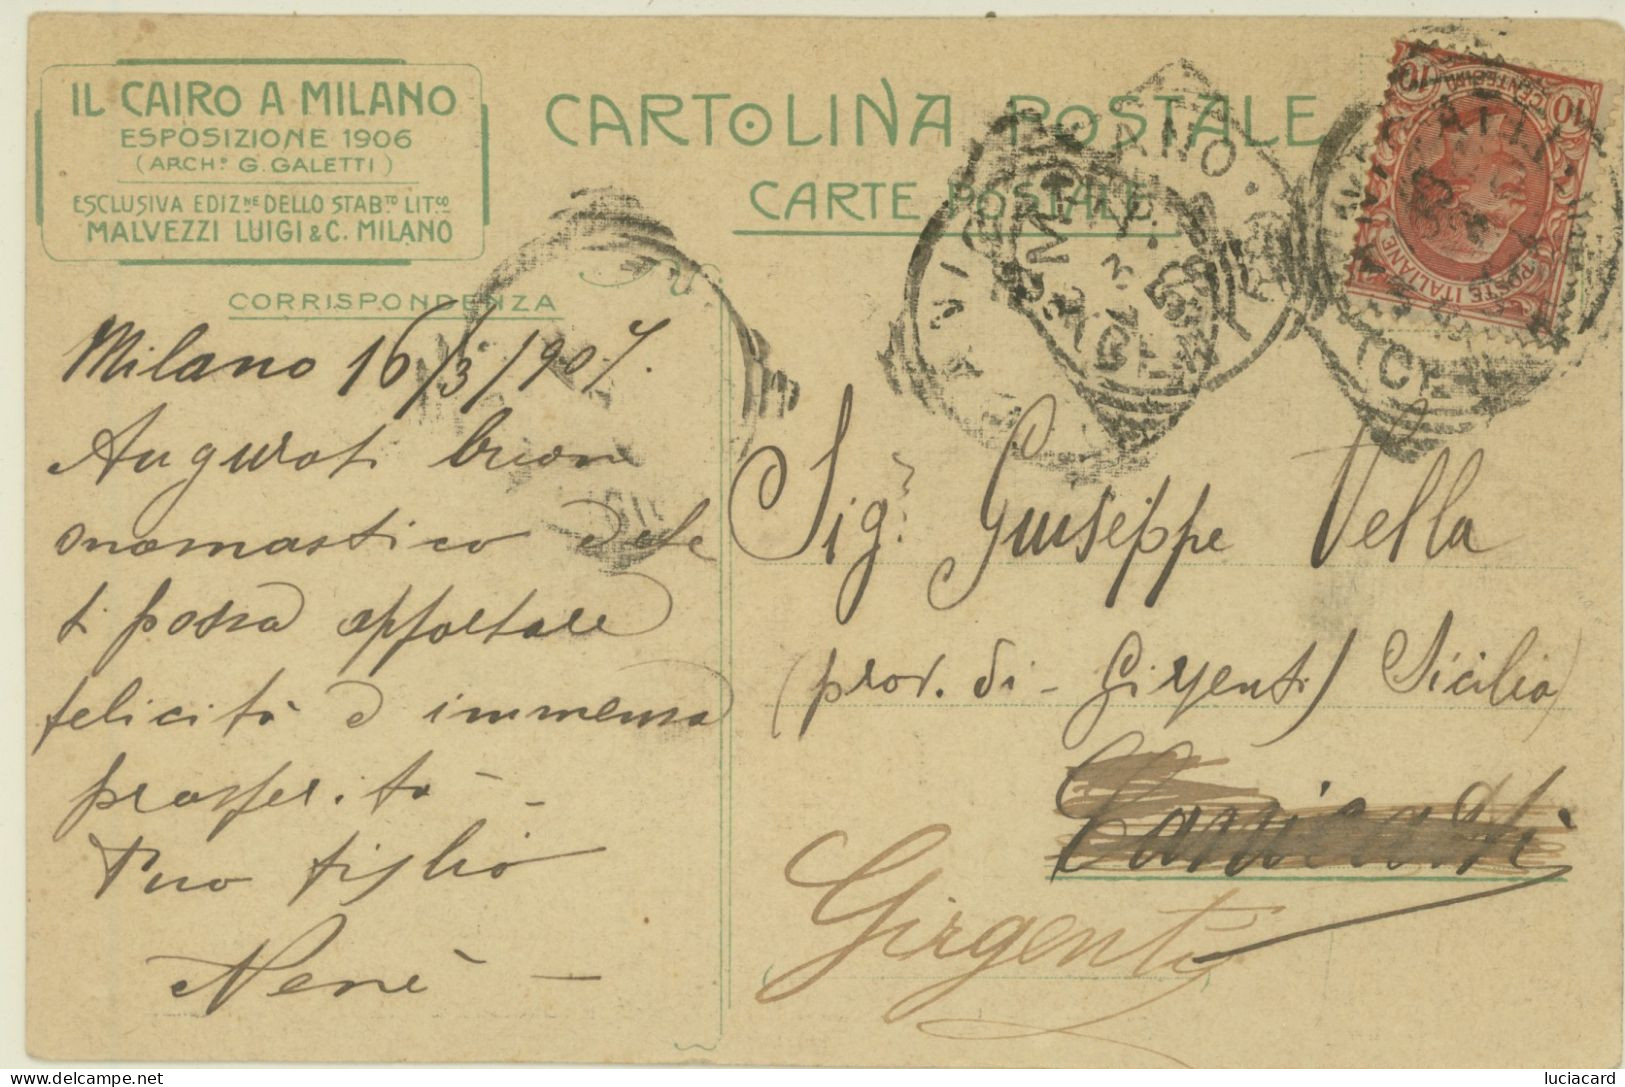 IL CAIRO A MILANO
ESPOSIZIONE 1906
(ARCH.º G. GALETTI)
ESCLUSIVA EDIZ.NE DELLO STAB.TO LIT.CO
MALVEZZI LUIGI & C. MILANO
CARTOLINA POSTALE
CARTE POSTALE
CORRISPONDENZA
Milano 16/3/907.
Auguroti buon
onomastico
ti possa apportare
felicità e immensa
prosperità -
Tuo figlio
Nenè -
Sig.r Giuseppe Vella
(prov. di - Girgenti) Sicilia
Canicatti
Girgenti
10
CENTESIMI
10
POSTE ITALIANE
MILANO
luciacard